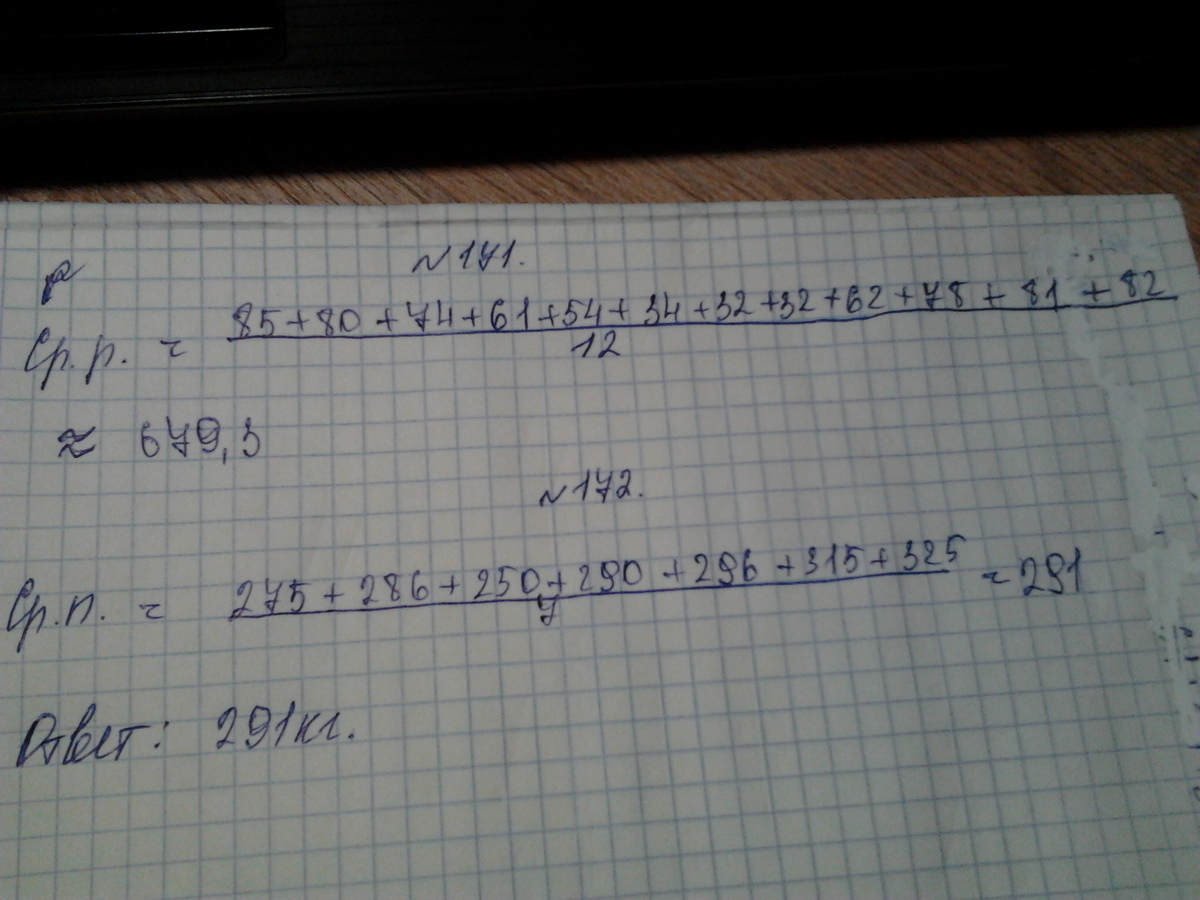 №171.
Ср.р. = 85+80+74+61+54+34+32+32+62+78+81+82
12
≈ 679,3
№172.
Ср.п. = 275+286+250+290+296+315+325 = 291
7
Ответ: 291кг.